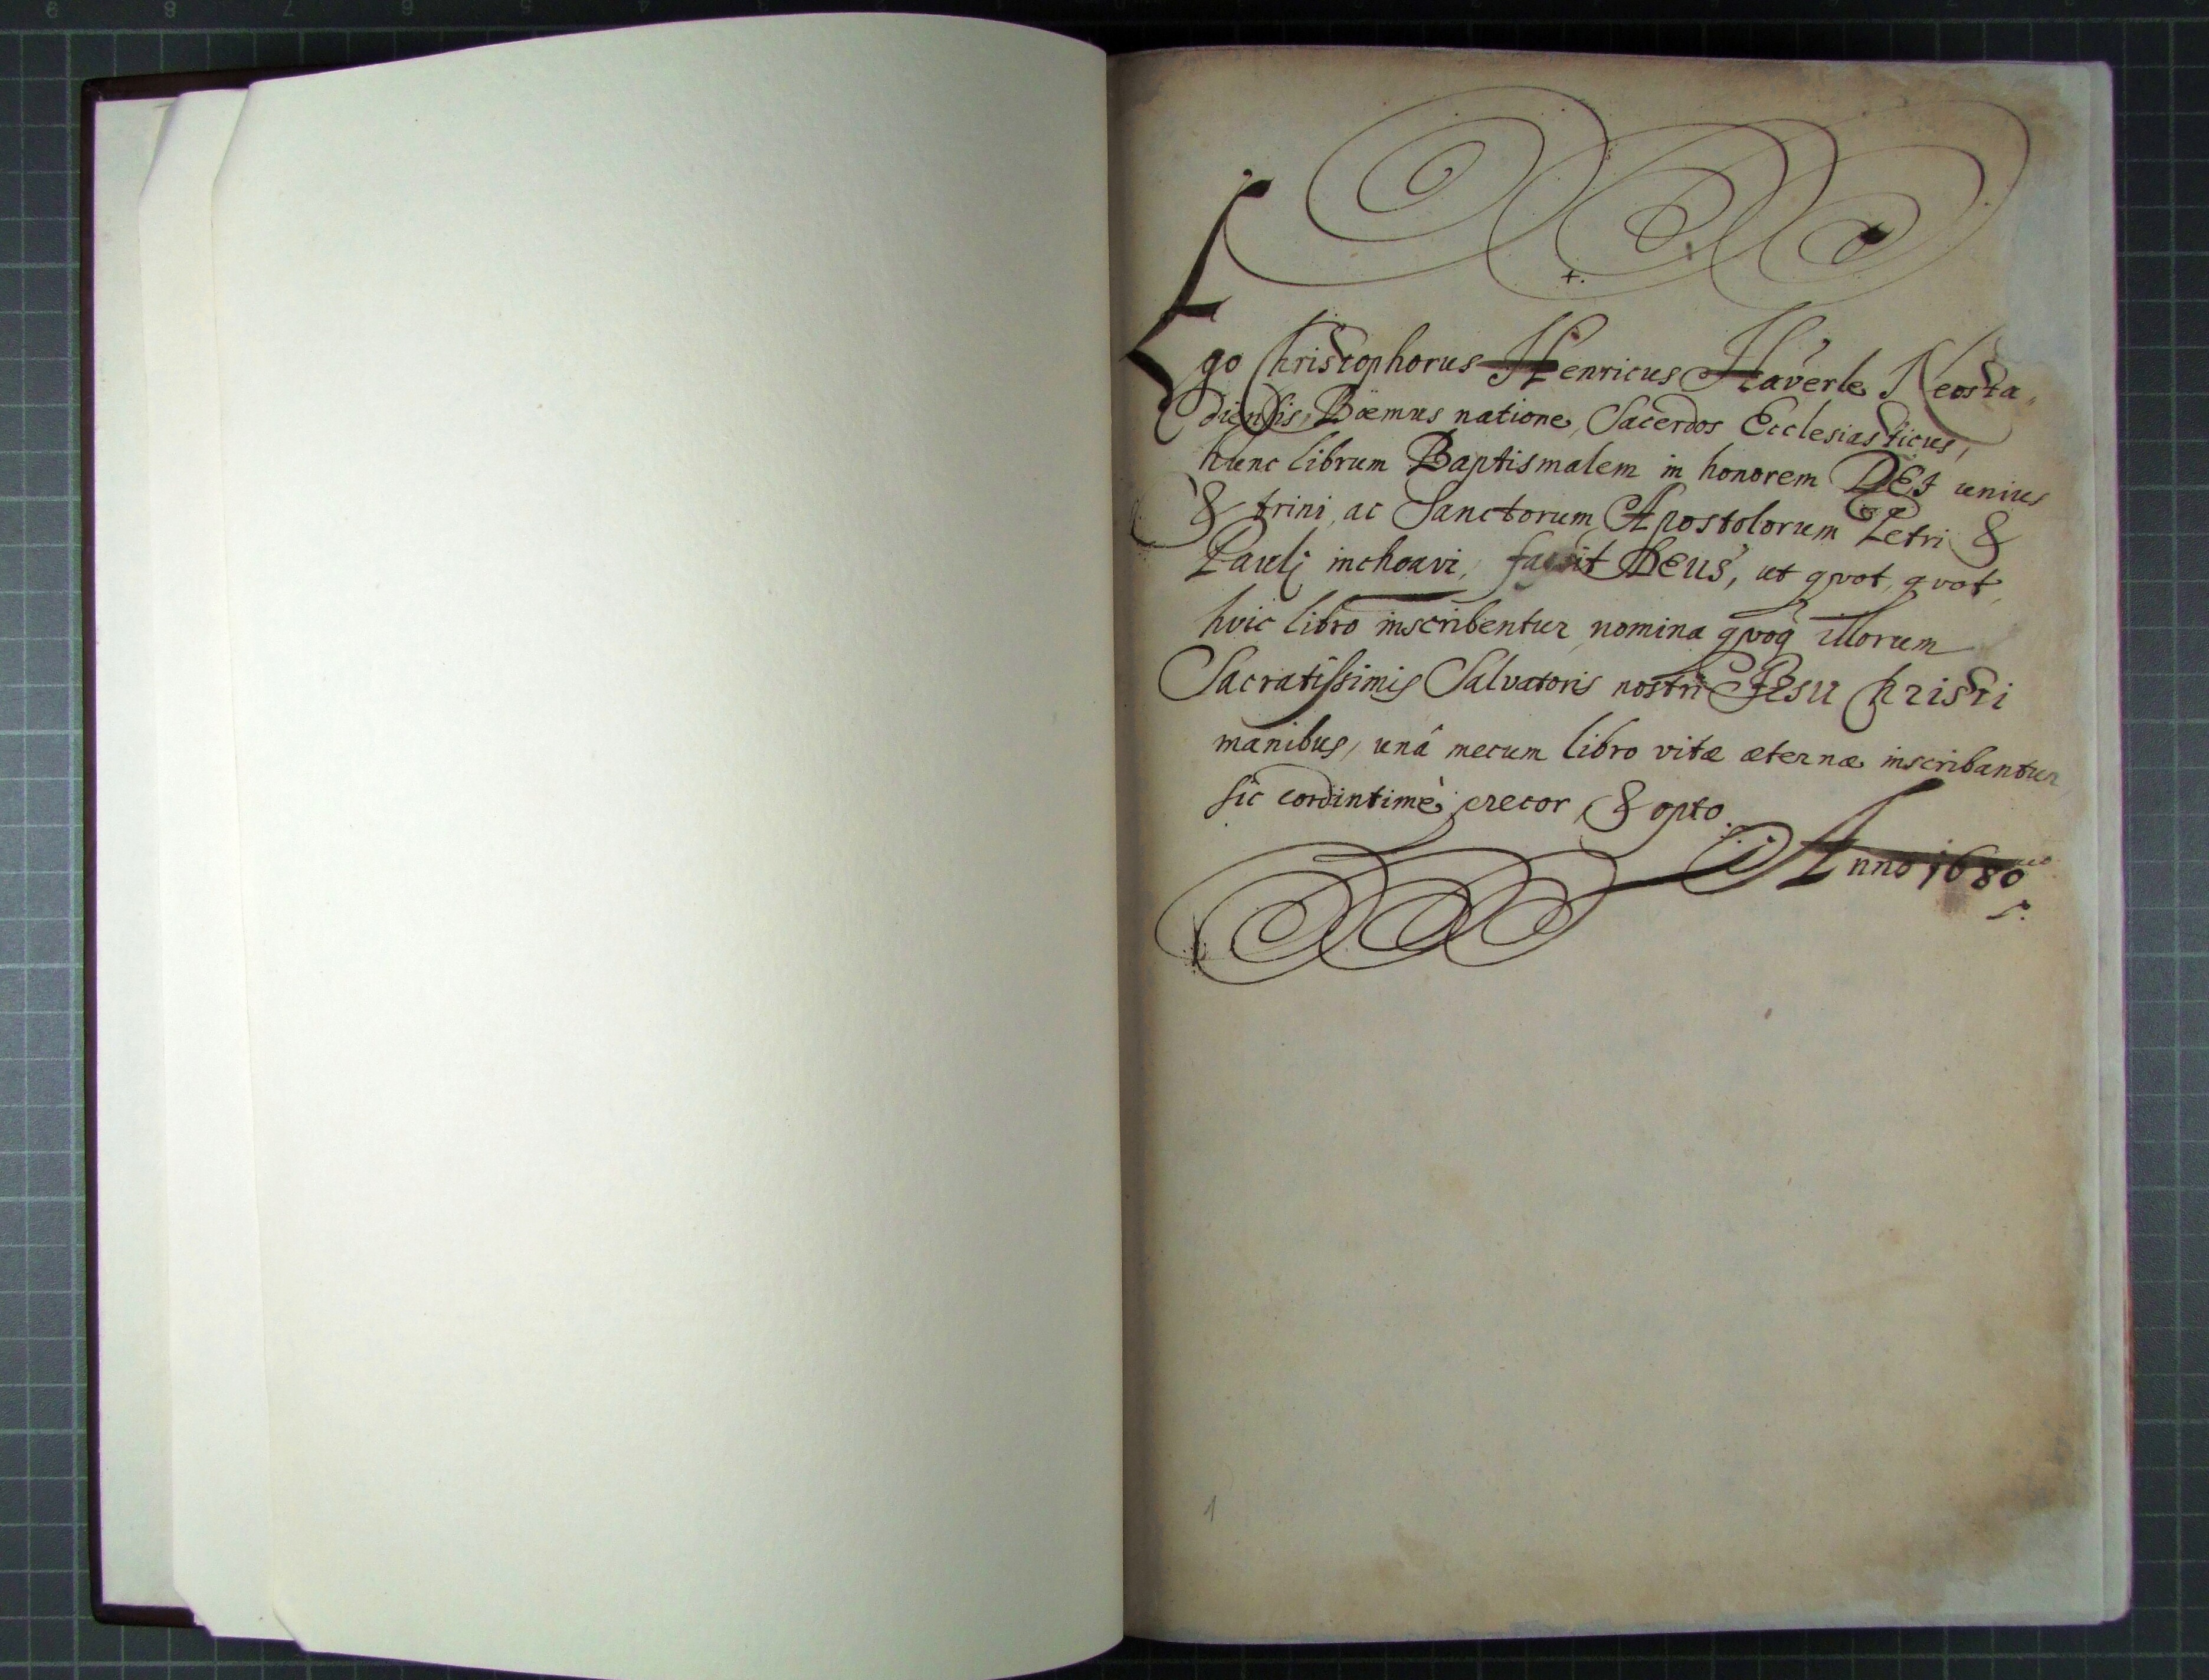 +.
Ego Christophorus Henricus Haverle Neosta„
diensis, Böemus natione, Sacerdos Ecclesiasticus,
hunc librum Baptismalem in honorem DEI unius
& trini, ac Sanctorum Apostolorum Petri &
Pauli inchoavi, faxit Deus, ut qvot, qvot,
hvic libro inscribentur, nomina qvoq illorum
Sacratissimis Salvatoris nostri Jesu Christi
manibus, unâ mecum libro vitæ æternæ inscribantur
sic cordintimè precor, & opto.
Anno 1680
1